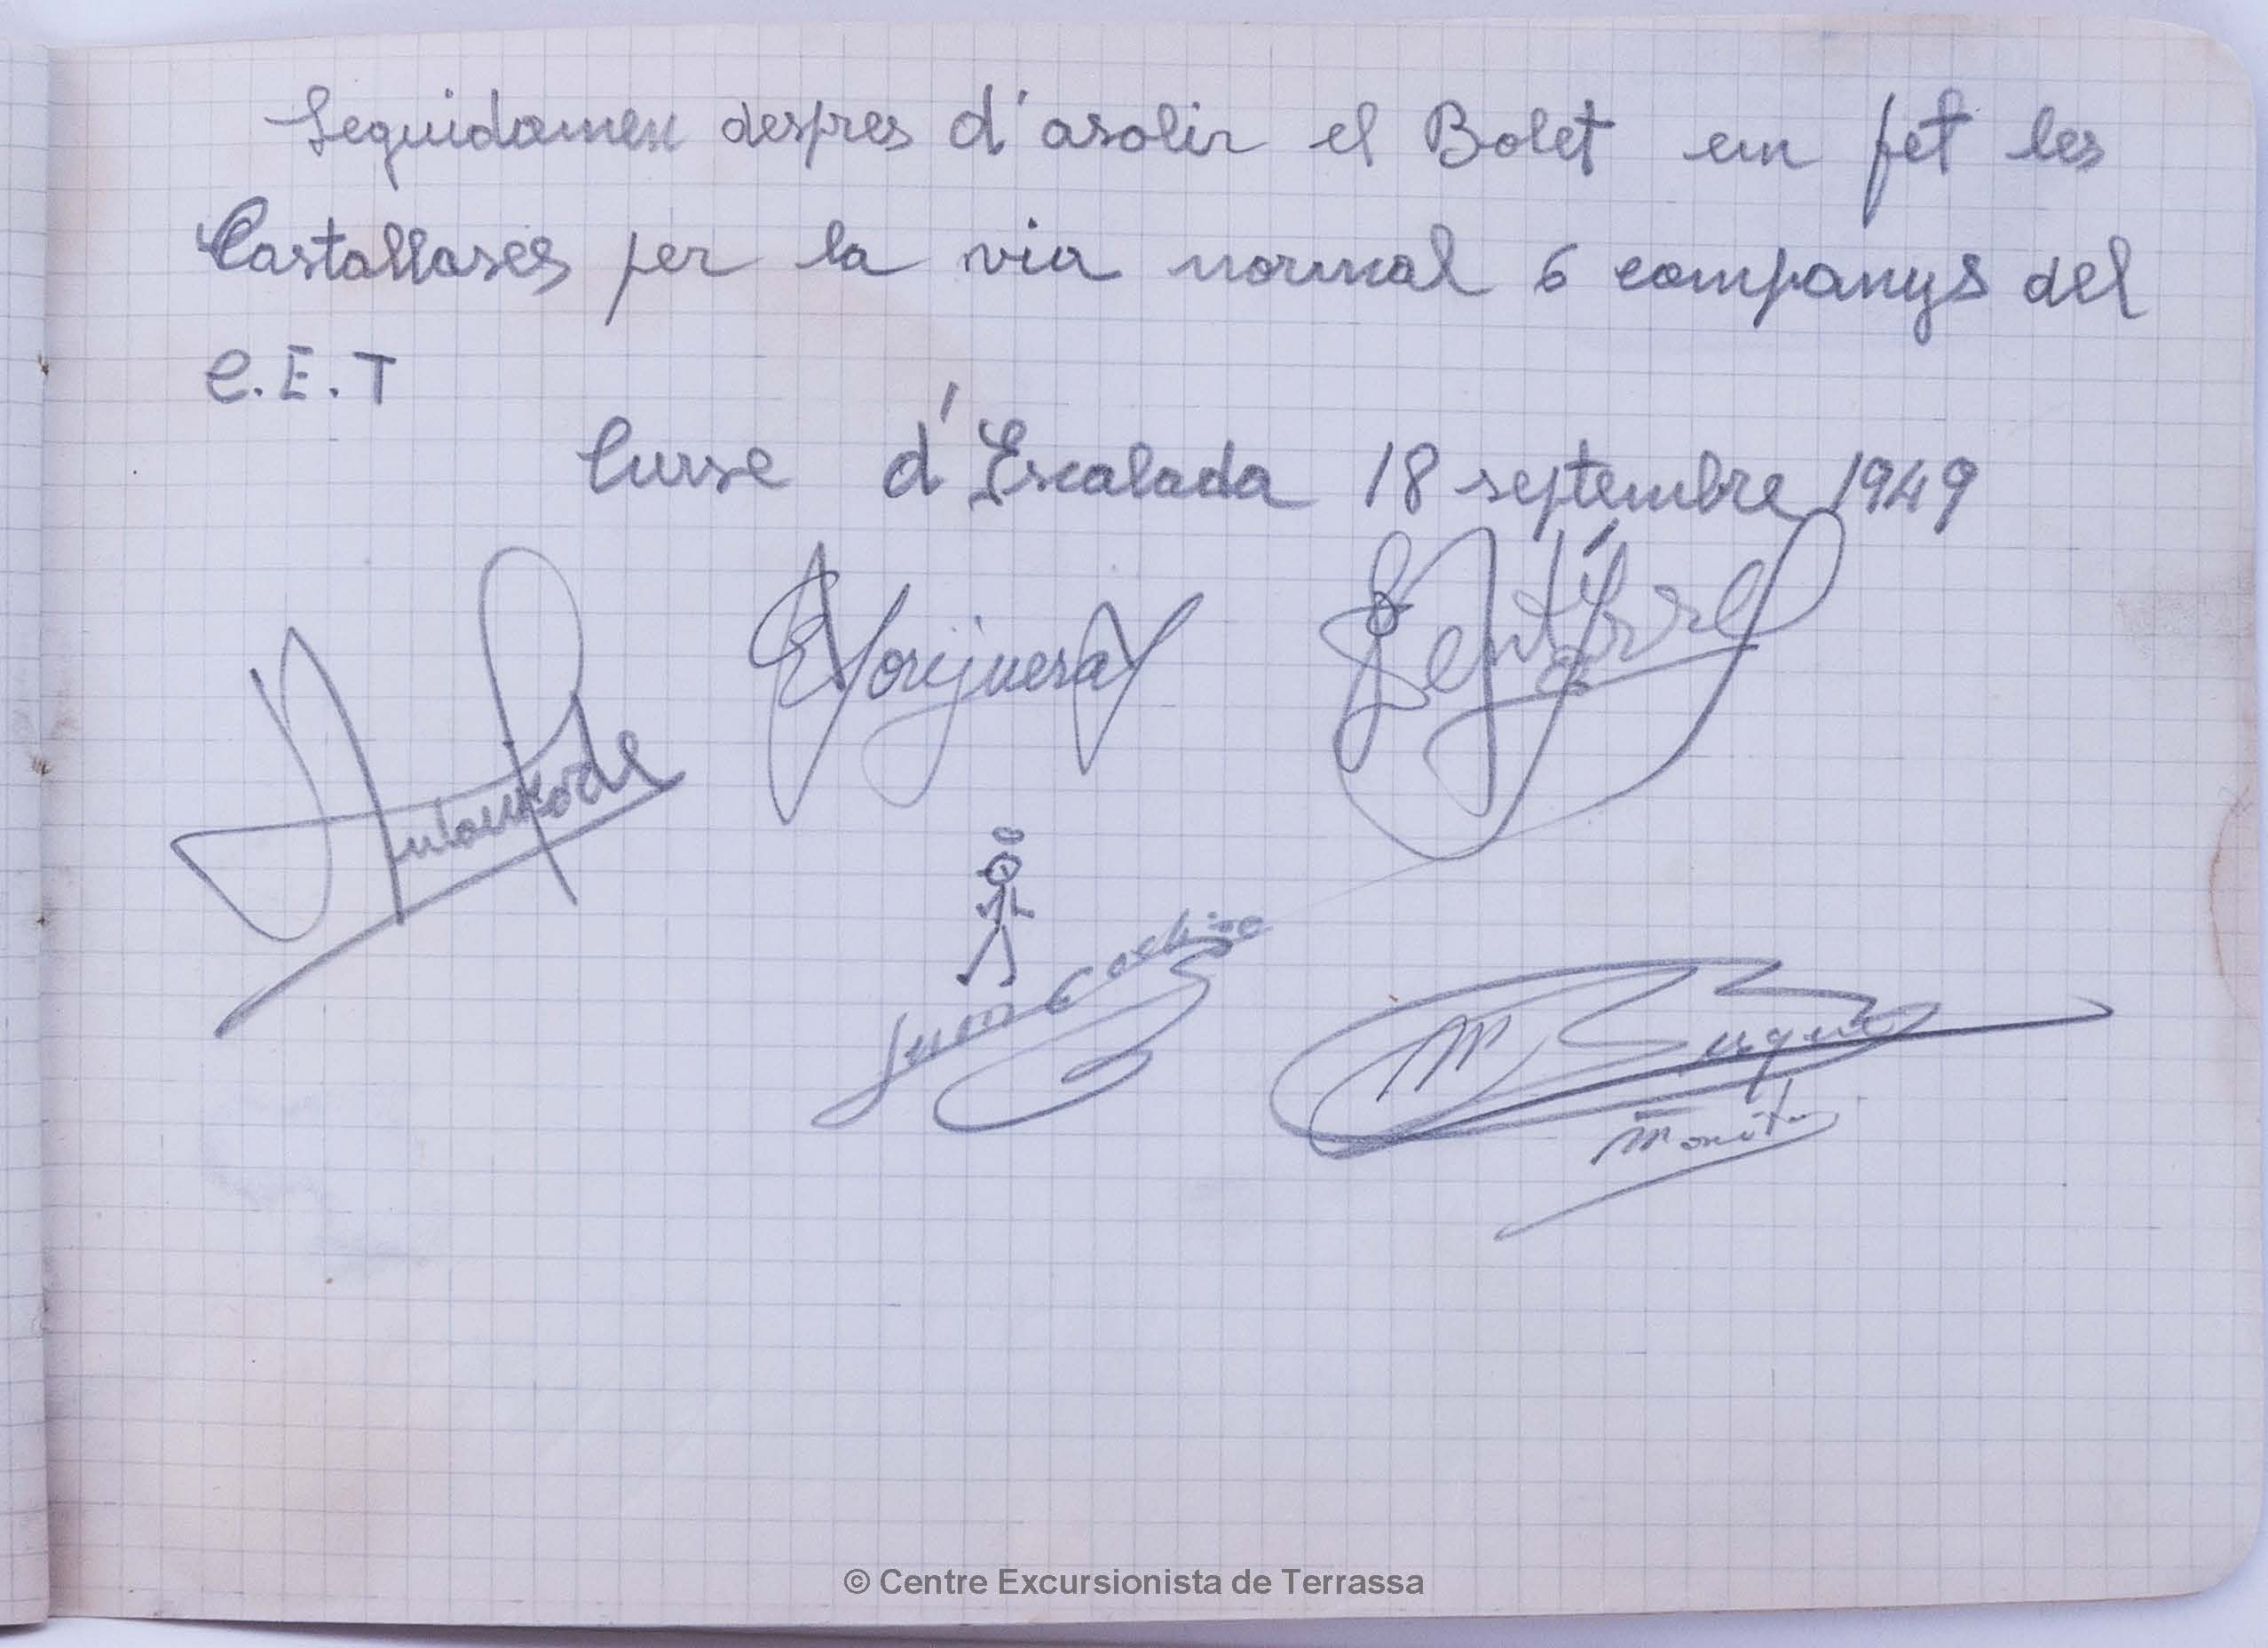 Seguidamen despres d'asolir el Bolet em fet les
Castallases per la via normal 6 companys del
C.E.T
Curse d'Escalada 18 septembre 1949
Juan
M
Monitor
© Centre Excursionista de Terrassa